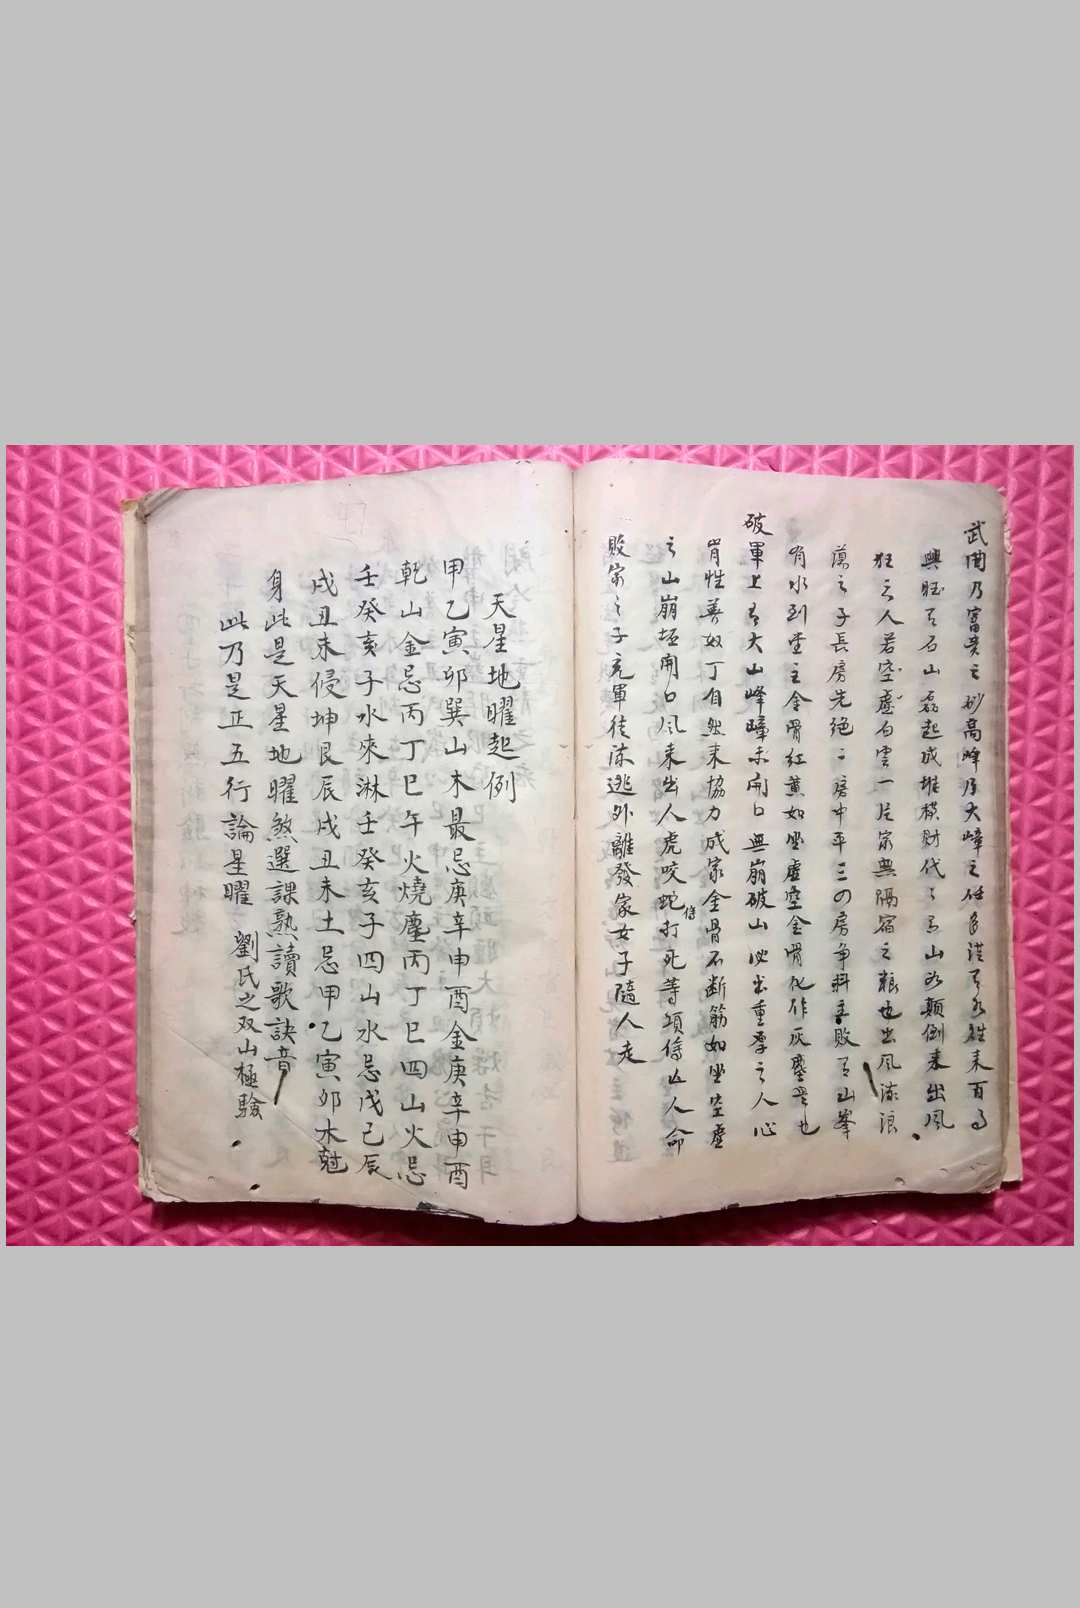 武曲乃富贵之砂高峰乃大嶂之任多湾弓水往来百子
興旺乃石山磊起成堆横财代々子山水颠倒来出風
狂之人若空虚白雲一片家無隔宿之粮也出風流浪
蕩之子長房先绝二房中平三四房争料主敗子山峯
有水到堂主金骨红黄如坐虚空金骨化作灰塵是也
破軍上有大山峰嶂未開口無崩破山必出重厚之人心
肖性善奴丁自然来協力成家金骨不断筋如坐空虚
之山崩坭開口風来出人虎咬蛇打死等項傷亡人命
敗家之子充軍徒流逃外離發家女子隨人走
天星地曜起例
甲乙寅卯巽山木最忌庚辛申酉金庚辛申酉
乾山金忌丙丁巳午火燒塵丙丁巳四山火忌
壬癸亥子水來淋壬癸亥子四山水忌戊己辰
戌丑未侵坤艮辰戌丑未土忌甲乙寅卯木尅
身此是天星地曜煞選課熟讀歌訣音
此乃是正五行論星曜 劉氏之双山極驗